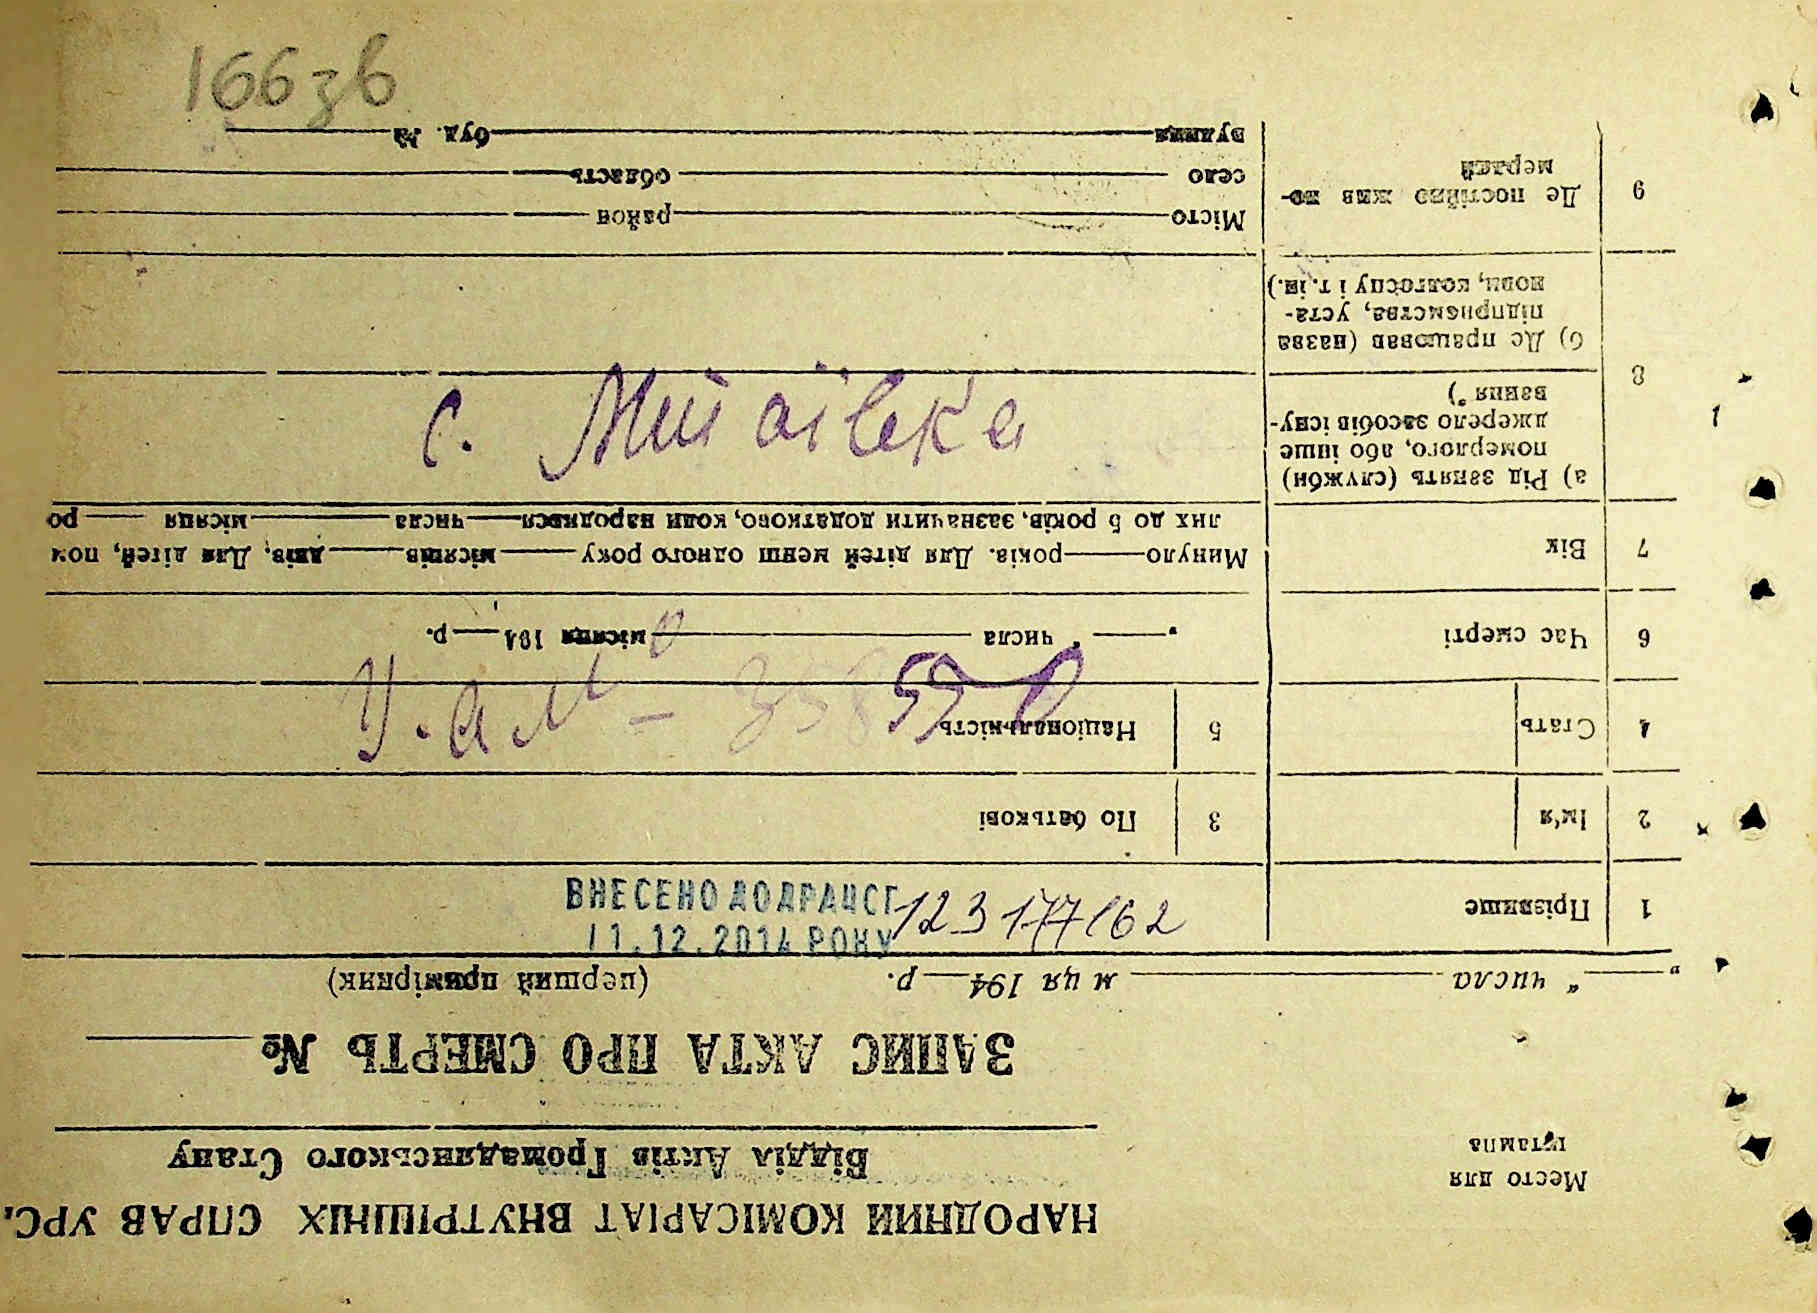 166зв
НАРОДНИЙ КОМІСАРІАТ ВНУТРІШНІХ СПРАВ УРС.
Місто для
штампа
Відділ Актів Громадянського Стану
ЗАПИС АКТА ПРО СМЕРТЬ №
" числа м ця 194 р. (перший примірник)
1 Прізвище
ВНЕСЕНО ДО ДРАЦСГ
11.12.2014 РОКУ
123 177162
2 Ім'я 3 По батькові
4 Стать 5 Національність
6 Час смерті " " числа місяця 194 р.
7 Вік Минуло років. Для дітей менш одного року місяців днів. Для дітей, пом
лих до 5 років, зазначити додатково, коли народився числа місяця ро
8 а) Рід занять (служби)
померлого, або інше
джерело засобів існу-
вання *)
с.
б) Де працював (назва
підприємства, уста-
нови, колгоспу і т. ін.)
9 Де постійно жив по-
мерлий
Місто район
село область
вулиця буд. №